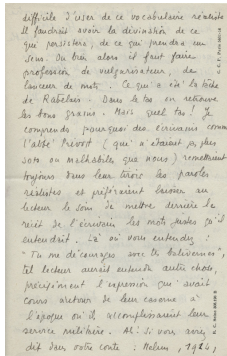 difficile d'user de ce vocabulaire réaliste
Il faudrait avoir la divination de ce
qui persistera, de ce qui prendra un
sens. Ou bien alors il faut faire
profession de vulgarisateur, de
lanceur de mots. Ce qui a été la tâche
de Rabelais. Dans le tas on retrouve
les bons grains. Mais quel tas ! Je
comprends pourquoi des écrivains comme
l'abbé Prévost (qui n'étaient pas plus
sots ou malhabiles que nous) remettaient
toujours dans leur tiroir les paroles
réalistes et préféraient laisser au
lecteur le soin de mettre derrière le
récit de l'écrivain les mots justes qu'il
entendrait. Là où vous entendez :
"Tu me décourages avec tes balivernes",
tel lecteur aurait entendu autre chose,
précisément l'expression qui avait
cours autour de leur caserne à
l'époque où ils accomplissaient leur
service militaire. Ah! si vous aviez
dit dans votre conte : Melun, 1924,